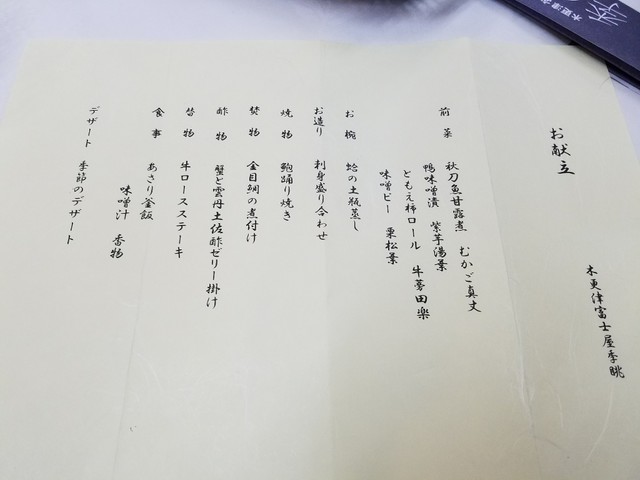 お献立
木更津富士屋季眺
前菜 秋刀魚甘露煮 むかご真丈
鴨味噌漬 紫芋湯葉
ともえ柿ロール 牛蒡田楽
味噌ピー 栗松葉
お椀 蛤の土瓶蒸し
お造り 刺身盛り合わせ
焼物 鮑踊り焼き
焚物 金目鯛の煮付け
酢物 蟹と雲丹土佐酢ゼリー掛け
肴物 牛ロースステーキ
食事 あさり釜飯
味噌汁 香物
デザート 季節のデザート
木更津